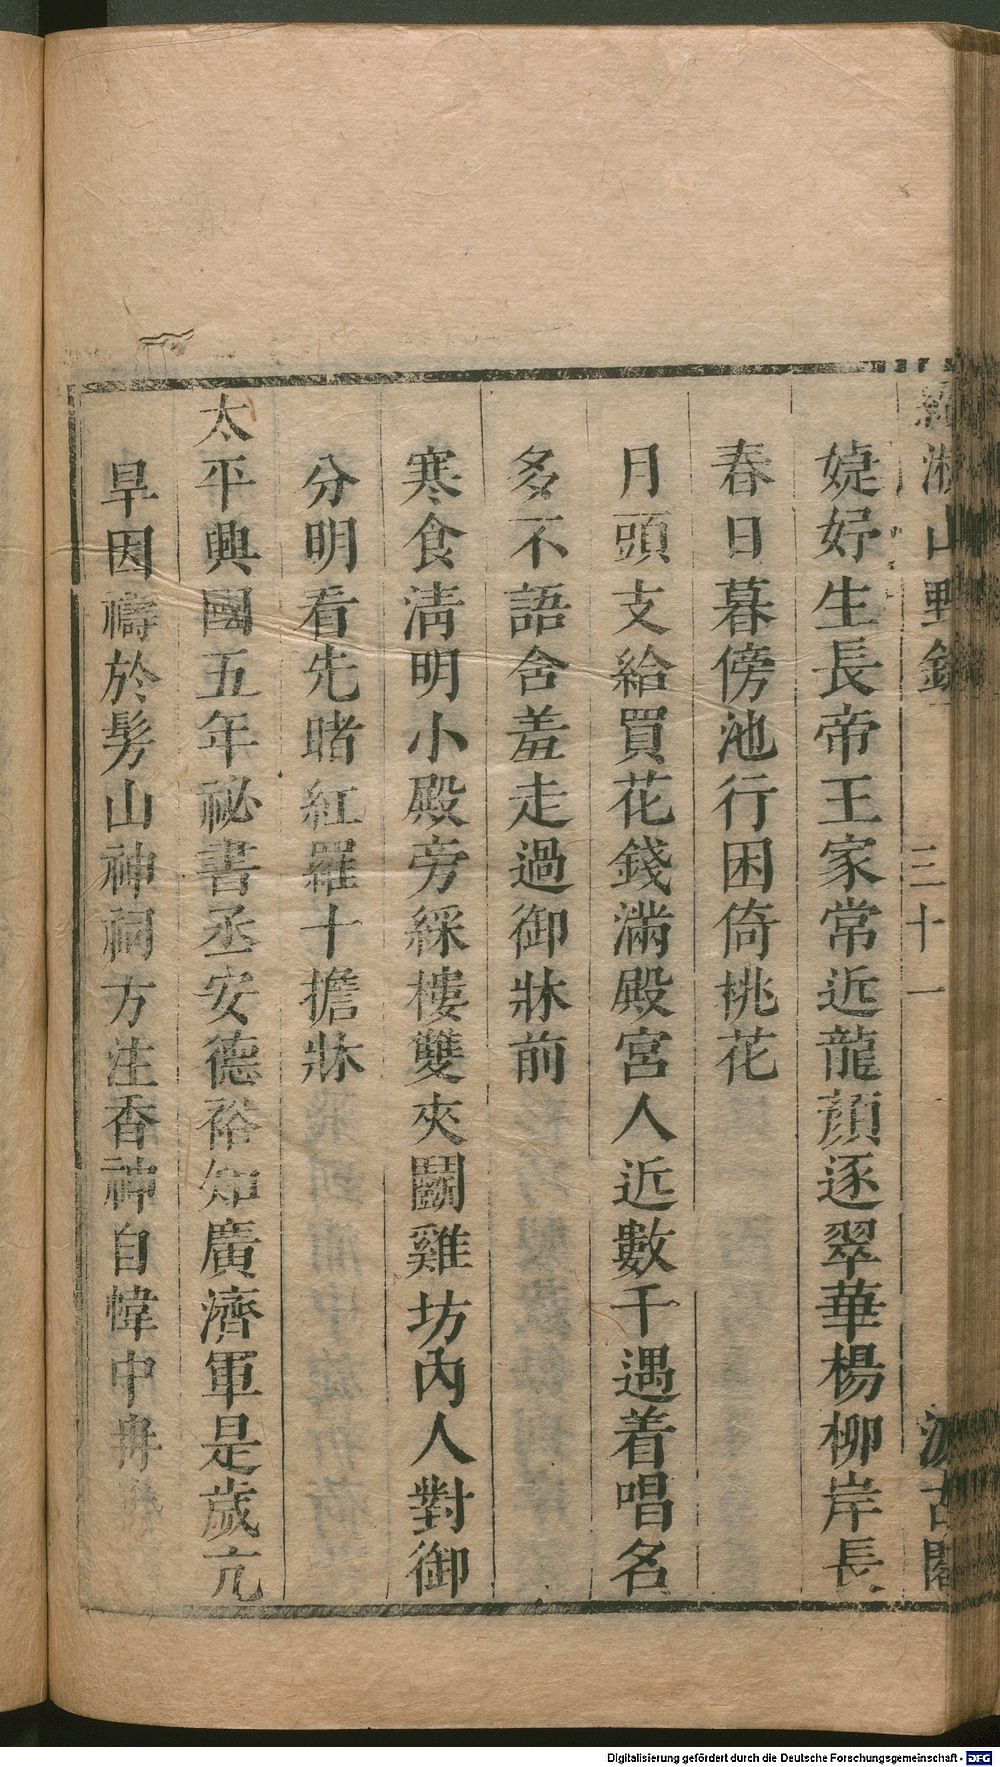 湘山野錄 三十一 汲古閣
婕妤生長帝王家常近龍顏逐翠華楊柳岸長
春日暮傍池行困倚桃花
月頭支給買花錢滿殿宮人近數千遇着唱名
多不語含羞走過御牀前
寒食淸明小殿旁綵樓雙夾鬬雞坊內人對御
分明看先賭紅羅十擔牀
太平興國五年祕書丞安德裕知廣濟軍是歲亢
旱因禱於髣山神祠方注香神自幃中冉
Digitalisierung gefördert durch die Deutsche Forschungsgemeinschaft - DFG